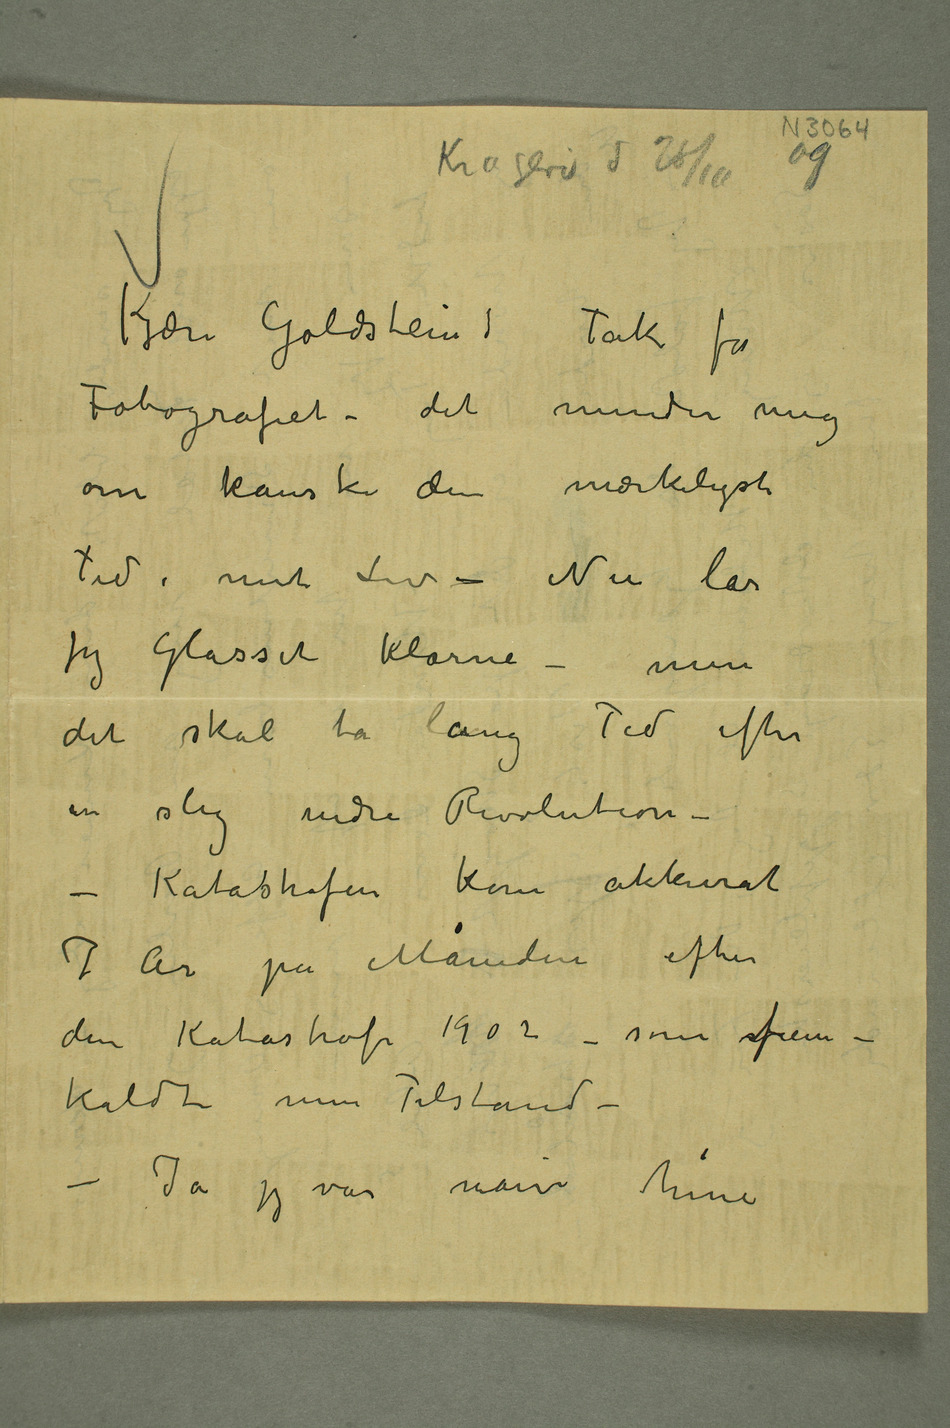 N3064
Kragerø d 26/10 09
Kjære Goldstein! Tak for
Fotografiet – det minder mig
om kanske den mærkeligste
Tid i mit Liv – Nu lar
jeg Glasset klarne – men
det skal ta lang Tid efter
en slig indre Revolution –
– Katastrofen kom akkurat
7 År på Måneden efter
den Katastrofe 1902 – som frem-
kaldte min Tilstand –
– Ja jeg var naiv hine